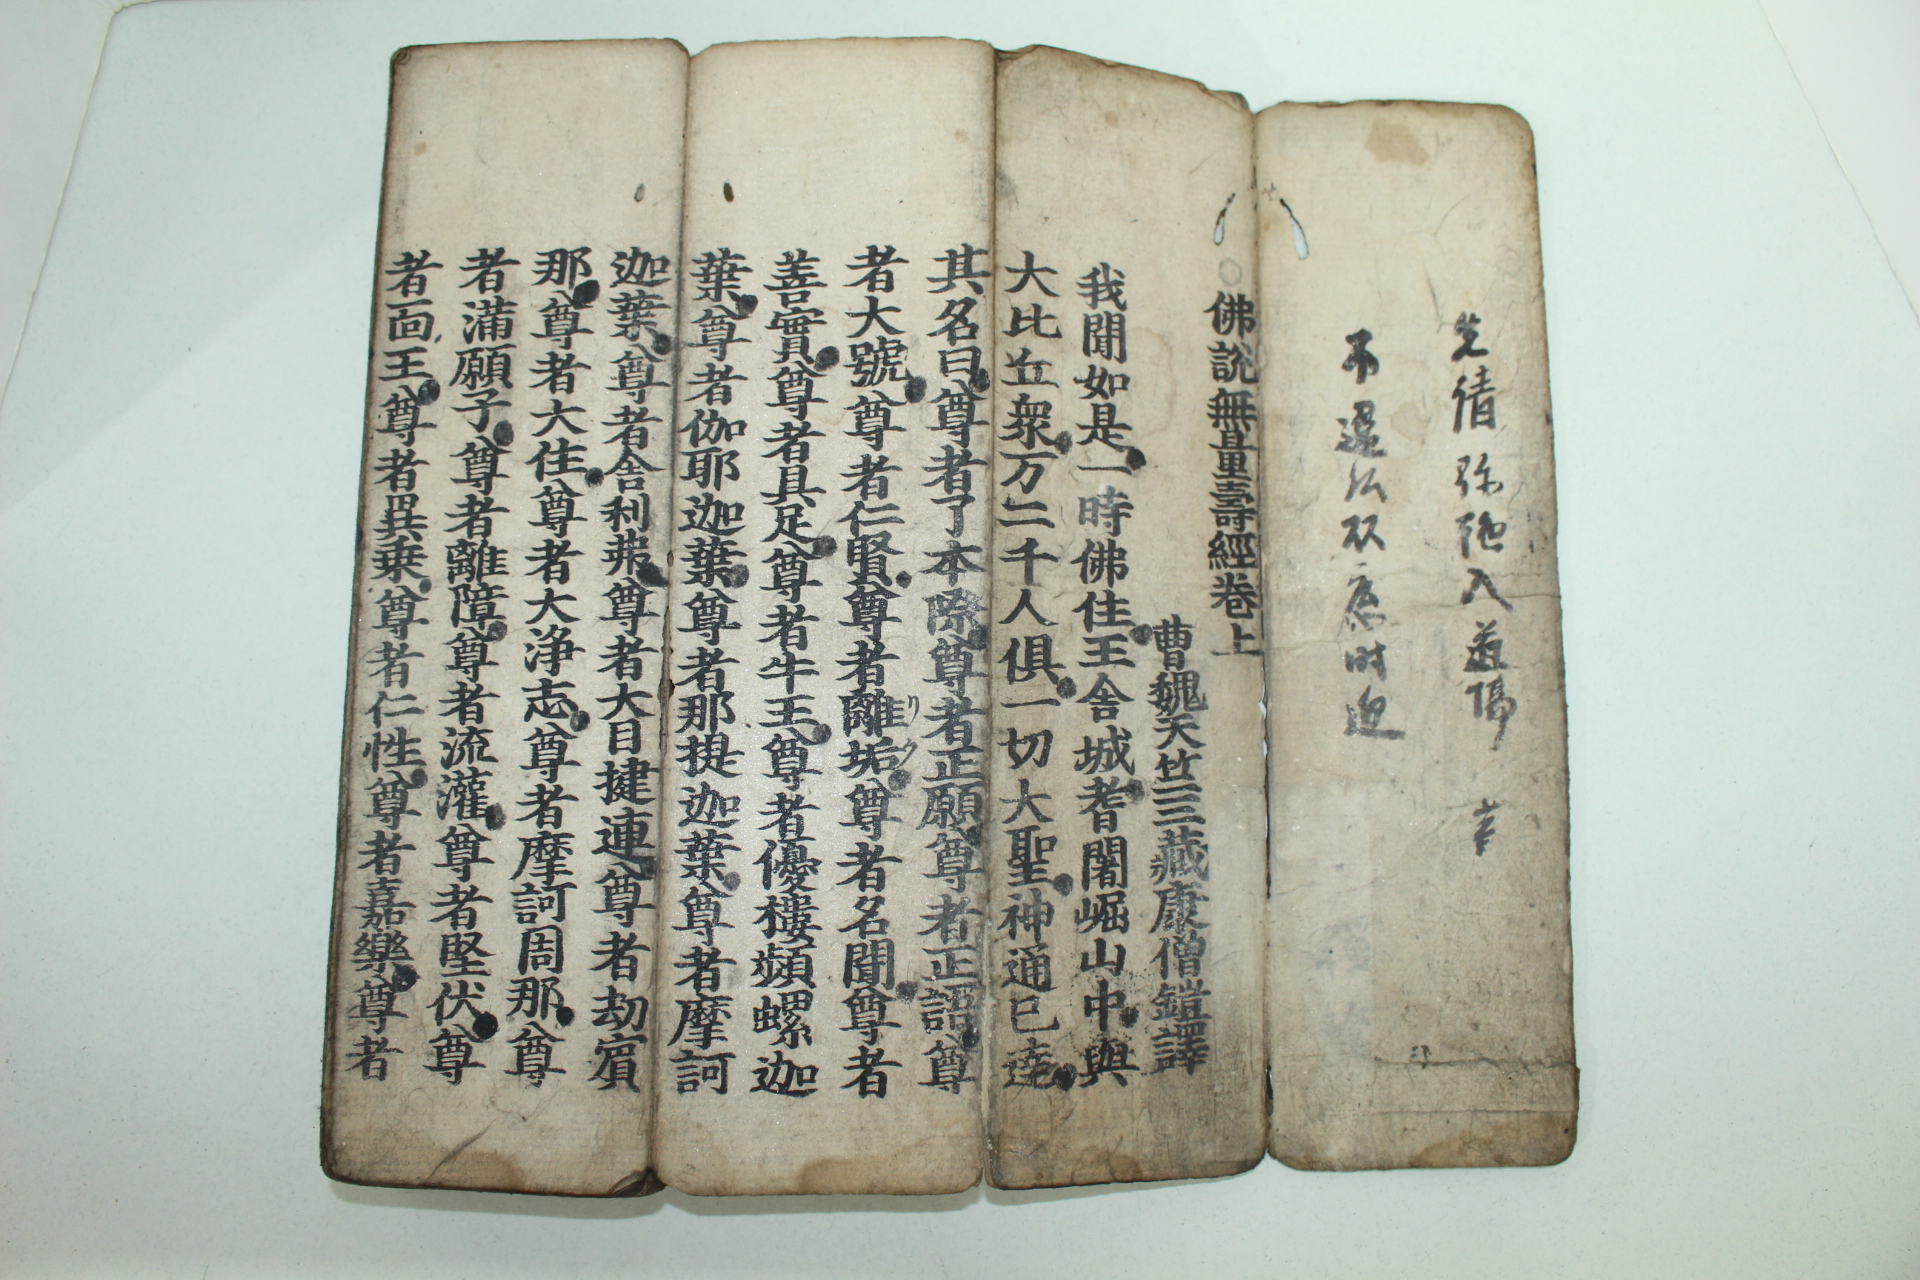 佛説無量壽經卷上
曹魏天竺三藏康僧鎧譯
我聞如是一時佛住王舍城耆闍崛山中與
大比丘衆万二千人俱一切大聖神通已達
其名曰尊者了本際尊者正願尊者正語尊
者大號尊者仁賢尊者離垢尊者名聞尊者
善實尊者具足尊者牛王尊者優樓頻螺迦
葉尊者伽耶迦葉尊者那提迦葉尊者摩訶
迦葉尊者舍利弗尊者大目揵連尊者劫賓
那尊者大住尊者大浄志尊者摩訶周那尊
者滿願子尊者離障尊者流灌尊者堅伏尊
者面王尊者異乗尊者仁性尊者嘉樂尊者